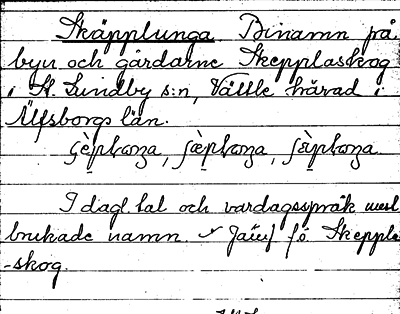 Skäpplunga Binamn på
byn och gårdarne Skepplaskog
i St. Lundby s:n, Vättle härad i
Älfsborgs län.
I dagl. tal och vardagsspråk mest
brukade namn. Jämf fö. Skeppla
-skog